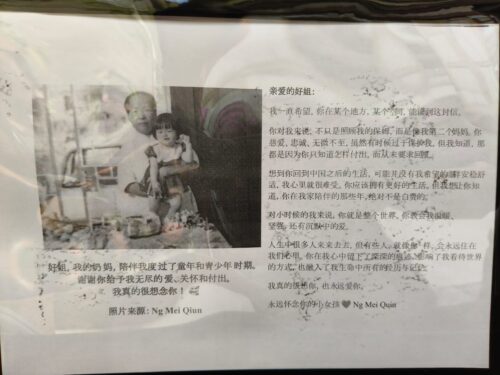 好姐, 我的奶妈, 陪伴我度过了童年和青少年时期。
谢谢你给予我无尽的爱、关怀和付出。
我真的很想念你!
照片来源: Ng Mei Qiun
亲爱的好姐:
我一直希望, 你在某个地方, 某个 能读到这封信。
你对我来说, 不仅是照顾我的保姆, 而是像我第二个妈妈, 你
慈爱, 忠诚, 无微不至, 虽然有时候过于保护我, 但我知道, 那
都是因为你只知道怎样付出, 而从未要求回报。
想到你回到中国之后的生活, 可能并没有我希望的那样安稳舒
适, 我心里就很难受。你应该拥有更好的生活, 但我想让你知
道, 你在我家陪伴的那些年, 绝对不是白费的。
对小时候的我来说, 你就是整个世界。你教会我温暖,
坚强, 还有沉默中的爱。
人生中很多人来来去去, 但有些人, 就像你一样, 会永远住在
我们心里。你在我心中留下了深深的痕迹, 影响了我看待世界
的方式, 也融入了我生命中所有的经历与记忆。
我真的很想你, 也永远爱你。
永远怀念你的小女孩 🖤 Ng Mei Qiun